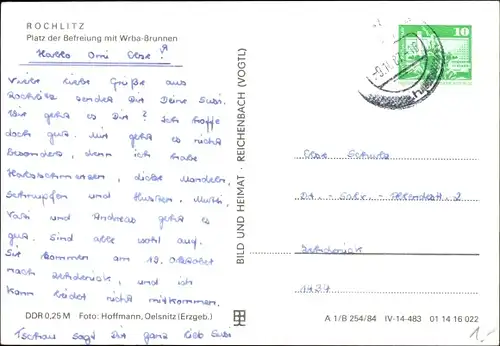 ROCHLITZ
Platz der Befreiung mit Wrba-Brunnen
Hallo Omi Else!
Viele liebe Grüße aus
Rochlitz sendet Dir Deine Susi.
Wie geht es Dir? Ich hoffe
doch gut. Mir geht es nicht
besonders, denn ich habe
Halsschmerzen, dicke Mandeln,
Schnupfen und Husten. Mutti,
Vati und Andreas geht es
gut. Sind alle wohl auf.
Sie kommen am 19. Oktober
nach Zehdenick, und ich
kann leider nicht mitkommen.
DDR 0,25 M Foto: Hoffmann, Oelsnitz (Erzgeb.)
Tschau sagt Dir ganz lieb Susi
BILD UND HEIMAT · REICHENBACH (VOGTL)
10
Else
Dr. - Salv. - Allendestr. 2
Zehdenick
1434
A 1/B 254/84 IV-14-483 01 14 16 022
1.-